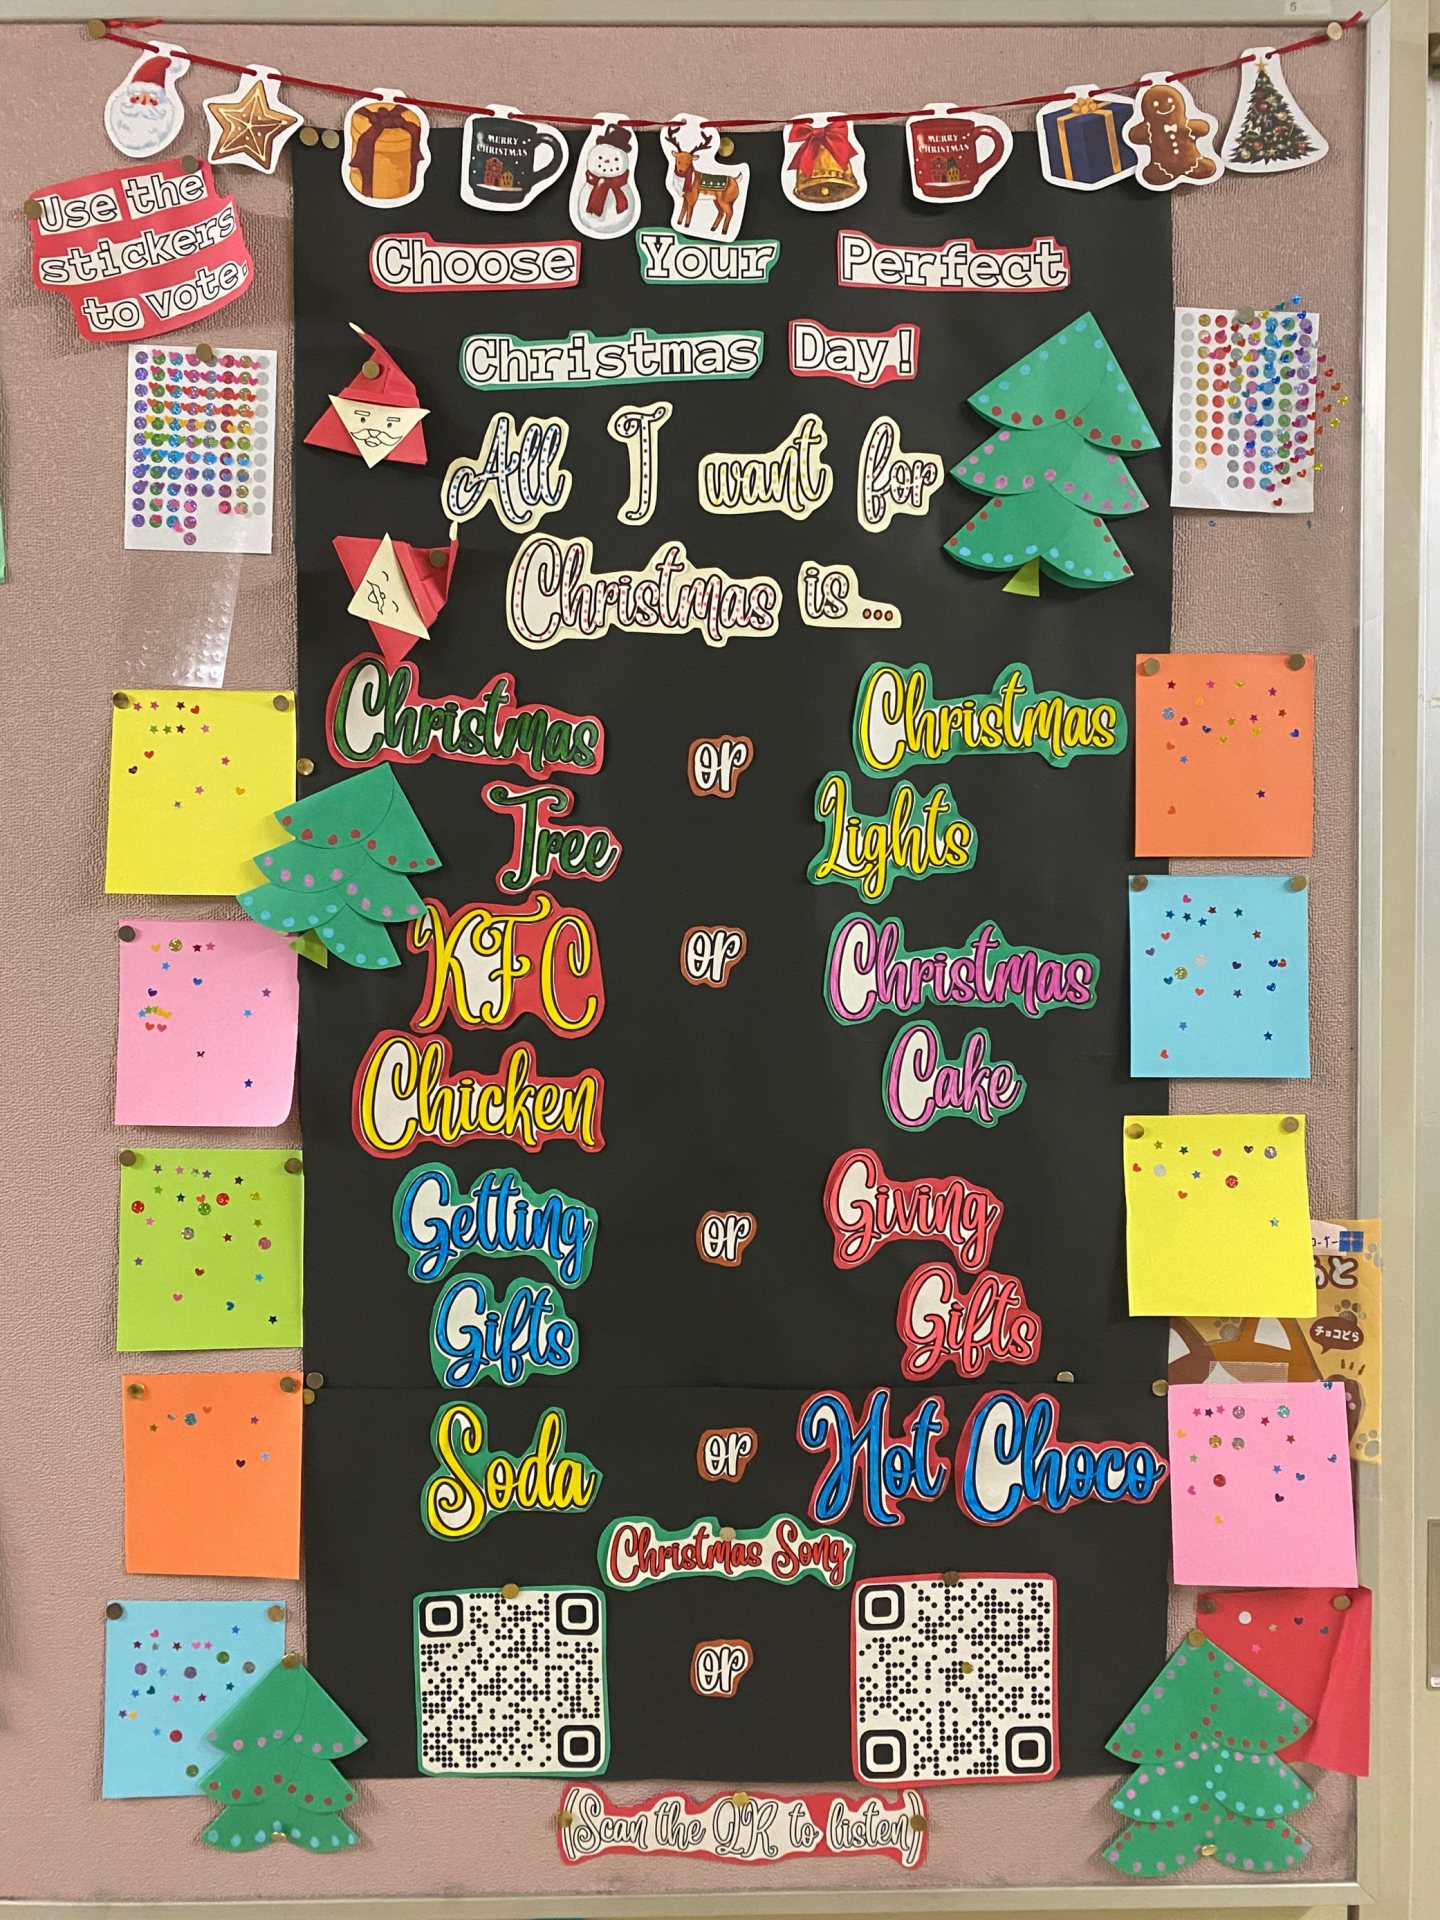 5
MERRY CHRISTMAS
MERRY CHRISTMAS
Use the
stickers
to vote.
Choose Your Perfect
Christmas Day!
All I want for
Christmas is...
Christmas or Christmas
Tree Lights
KFC or Christmas
Chicken Cake
Getting or Giving
Gifts Gifts
チョコどら
Soda or Hot Choco
Christmas Song
or
(Scan the QR to listen)